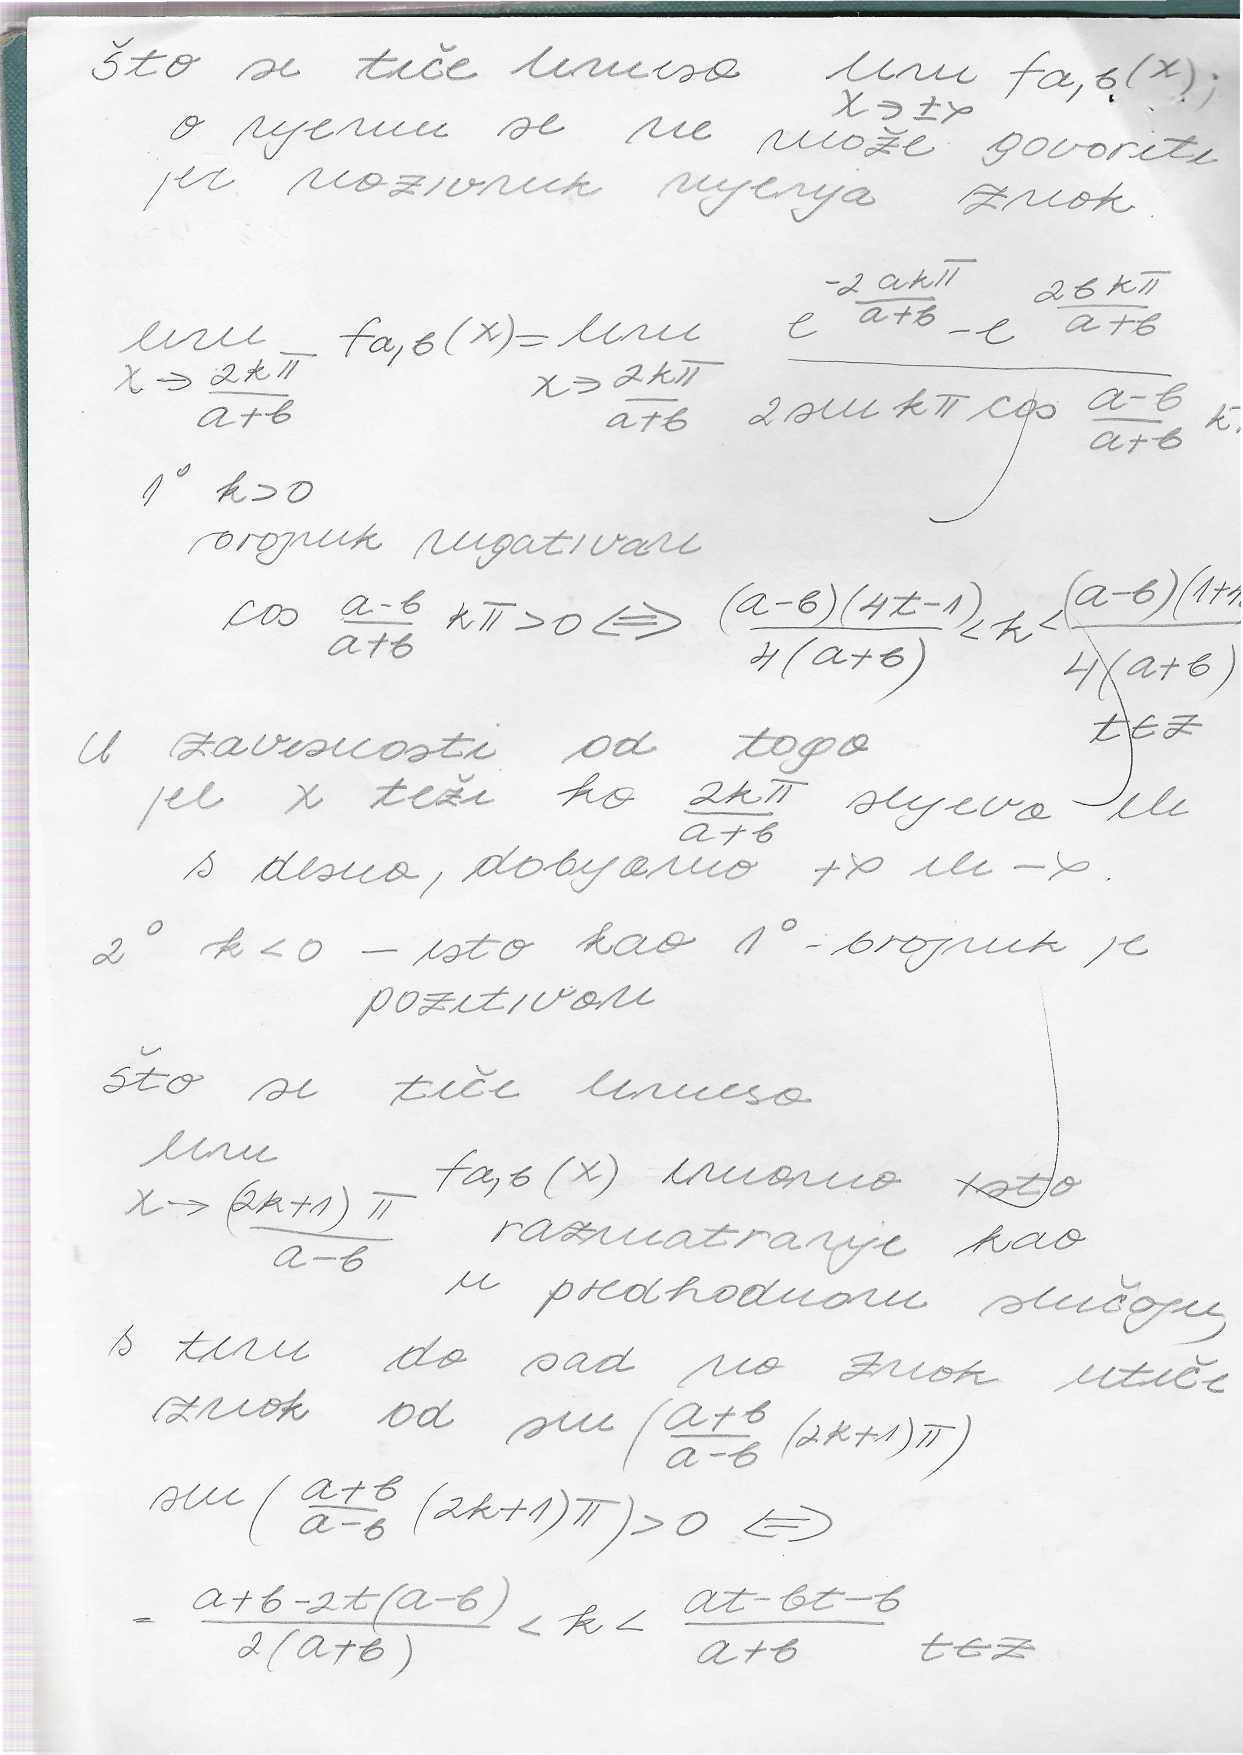 što se tiče limesa lim fa,b(x);
x→±∞
o njemu se ne može govoriti
jer nazivnik mjenja znak.
lim fa,b(x) = lim (e^(-2akπ/(a+b)) - e^(2bkπ/(a+b))) / (2 sin kπ cos (a-b)/(a+b) k
x→ 2kπ/(a+b) x→ 2kπ/(a+b)
1° k>0
brojnik negativan
cos (a-b)/(a+b) kπ > 0 ⇔ (a-b)(4t-1)/4(a+b) < k < (a-b)(1+4
4(a+b)
t∈Z
U zavisnosti od toga
jel x teži ka 2kπ/(a+b) slijeva ili
s desna, dobijamo +∞ ili -∞.
2° k<0 – isto kao 1° - brojnik je
pozitivan
što se tiče limesa
lim fa,b(x) imamo isto
x→ (2k+1)π/(a-b) razmatranje kao
u predhodnom slučaju,
s tim da sad na znak utiče
znak od sin ((a+b)/(a-b) (2k+1)π)
sin ((a+b)/(a-b) (2k+1)π) > 0 ⇔
= (a+b-2t(a-b))/2(a+b) < k < (at-bt-b)/(a+b) t∈Z